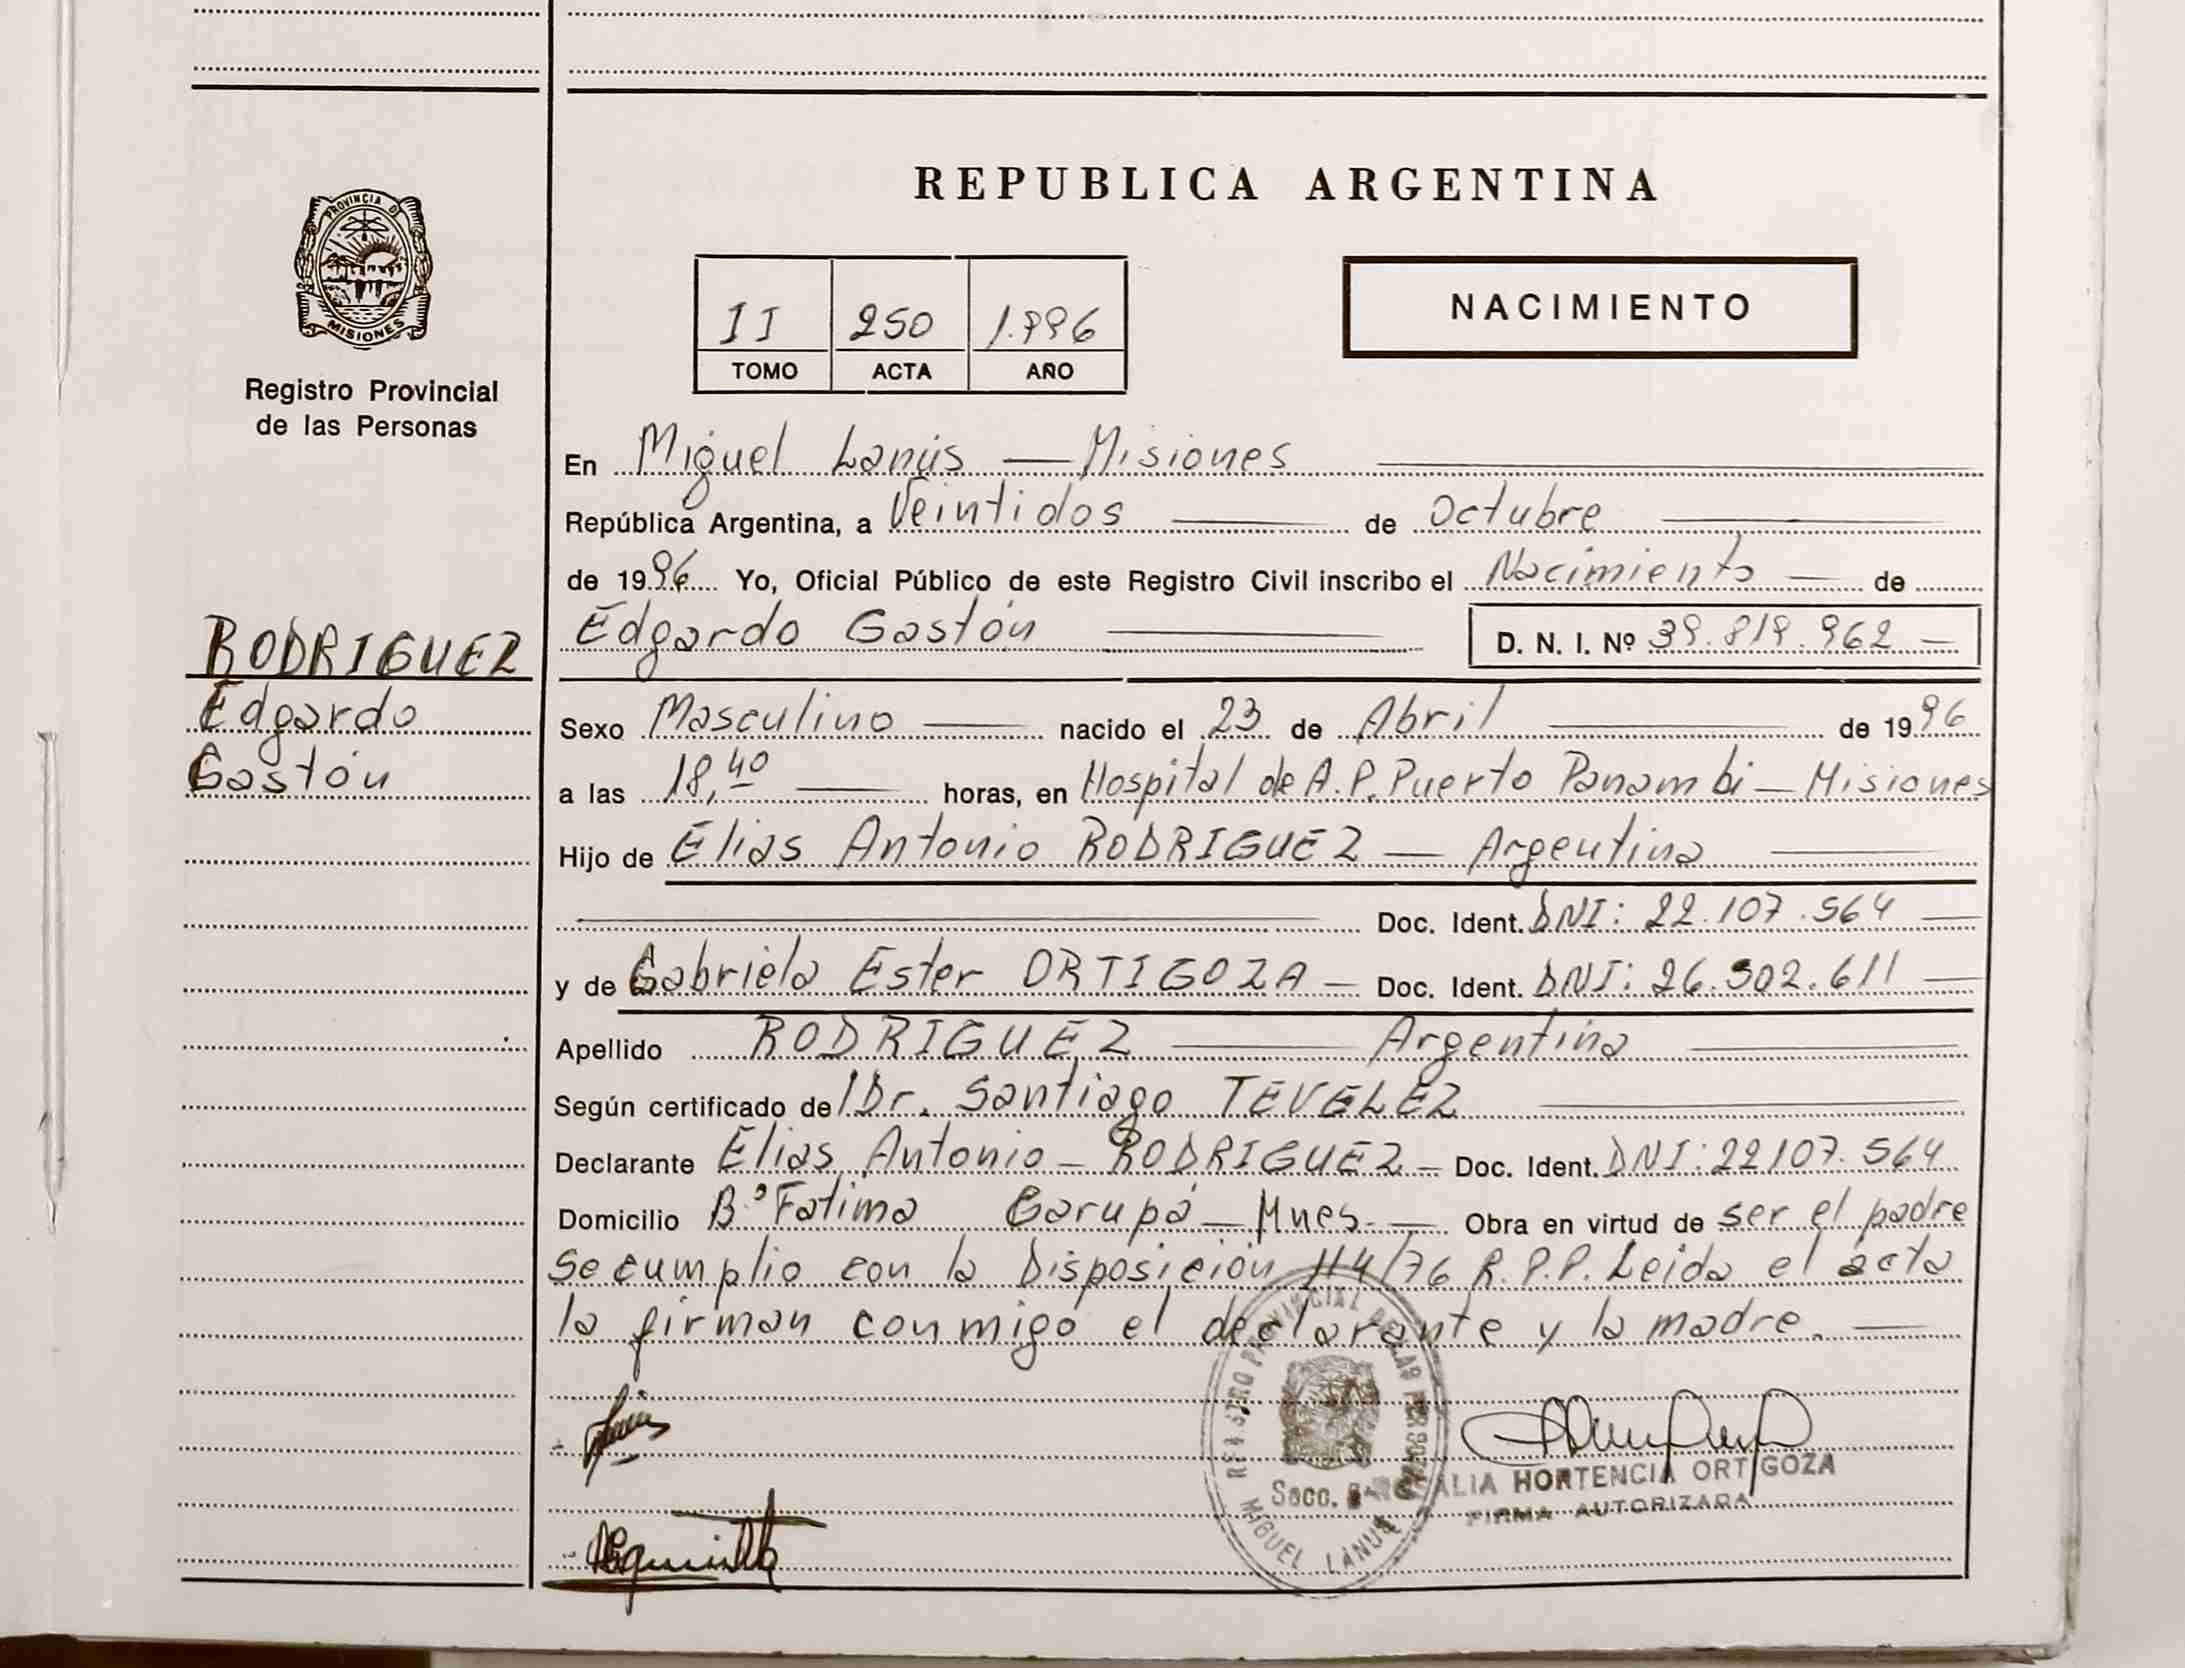 REPUBLICA ARGENTINA
PROVINCIA DE
MISIONES
Registro Provincial
de las Personas
II 250 1.996
TOMO ACTA AÑO
NACIMIENTO
En Miguel Lanús — Misiones
República Argentina, a Veintidos de Octubre
de 1996 Yo, Oficial Público de este Registro Civil inscribo el Nacimiento de
RODRIGUEZ
Edgardo
Gastón
Edgardo Gastón D. N. I. Nº 39.819.962
Sexo Masculino nacido el 23 de Abril de 1996
a las 18,40 horas, en Hospital de A.P. Puerto Panambi — Misiones
Hijo de Elias Antonio RODRIGUEZ — Argentina
Doc. Ident. DNI: 22.107.564
y de Gabriela Ester ORTIGOZA — Doc. Ident. DNI: 26.302.611
Apellido RODRIGUEZ Argentina
Según certificado del Dr. Santiago TEVELEZ
Declarante Elias Antonio — RODRIGUEZ — Doc. Ident. DNI: 22107.564
Domicilio Bº Fatima Garupá — Mnes. — Obra en virtud de ser el padre
Se cumplio con la Disposición 114/76 R.P.P. Leida el acta
la firman conmigo el declarante y la madre.
REGISTRO PROVINCIAL DE LAS PERSONAS
Secc.
MIGUEL LANUS
HORTENCIA ORTIGOZA
FIRMA AUTORIZADA